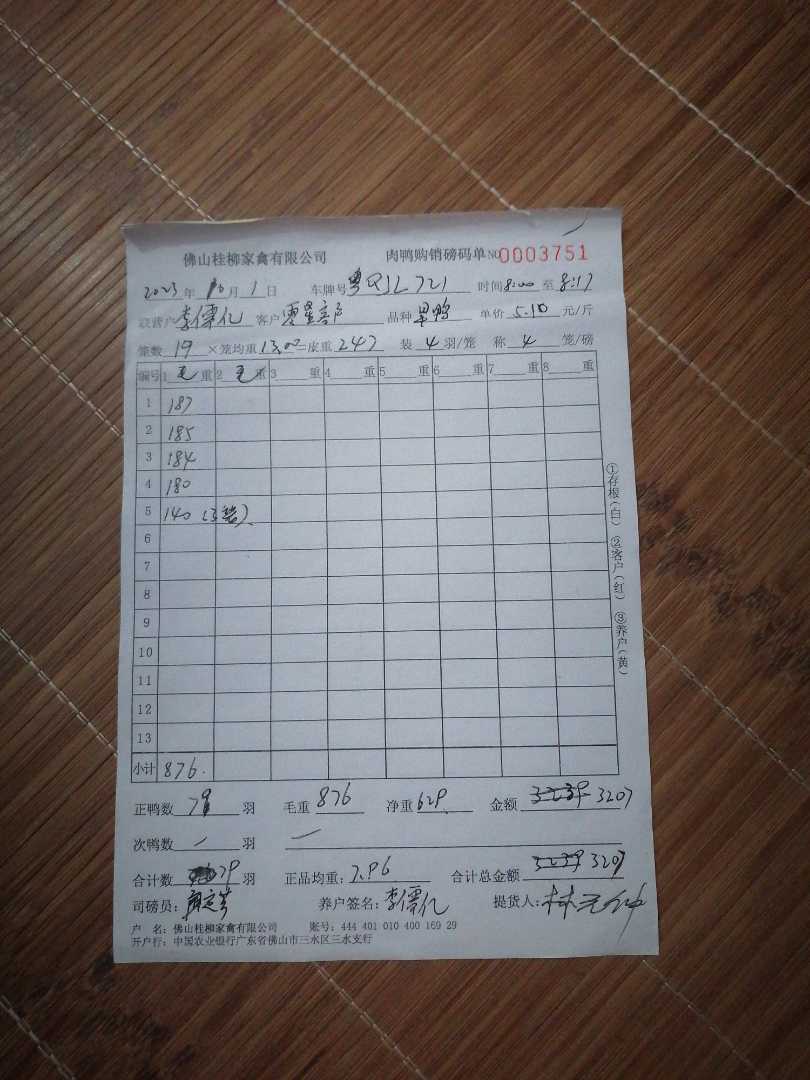 佛山桂柳家禽有限公司 肉鸭购销磅码单 NO 0003751
2023年10月1日 车牌号 时间8:00至8:17
联营户 李儒亿 客户 零星客户 品种 旱鸭 单价 5.10 元/斤
笼数 19 ×笼均重 13.00 =皮重 247 装 4 羽/笼 称 4 笼/磅
编号 1 毛 重 2 毛 重 3 重 4 重 5 重 6 重 7 重 8 重
1 187
2 185
3 184
4 180
5 140 (3笼)
6
7
8
9
10
11
12
13
小计 876.
正鸭数 79 羽 毛重 876 净重 629 金额 3239 3207
次鸭数 — 羽 —
合计数 79 羽 正品均重: 7.96 合计总金额 3239 3207
司磅员: 养户签名: 李儒亿 提货人:
户 名: 佛山桂柳家禽有限公司 账号: 444 401 010 400 169 29
开户行: 中国农业银行广东省佛山市三水区三水支行
①存根(白) ②客户(红) ③养户(黄)